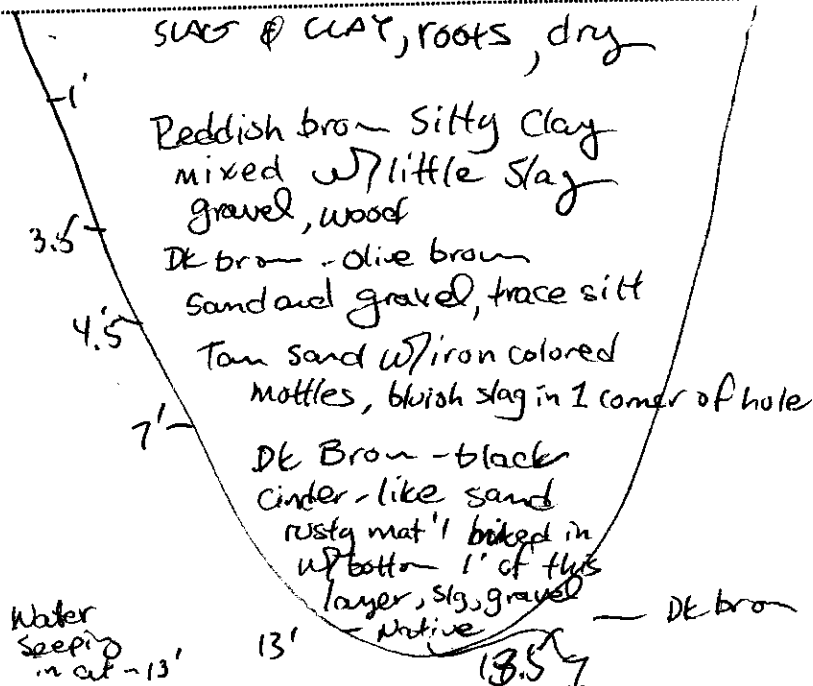 SLAG & CLAY, roots, dry
1'
Reddish brown Silty Clay
mixed w/ little Slag
gravel, wood
3.5'
Dk brown - olive brown
Sand and gravel, trace silt
4.5'
Tan Sand w/ iron colored
Mottles, bluish slag in 1 corner of hole
7'
Dk Brown - black
cinder-like sand
rusty mat'l in
w/ bottom 1' of this
layer, slg, gravel
Native
Dk brown
Water
Seeping
in at ~13'
13'